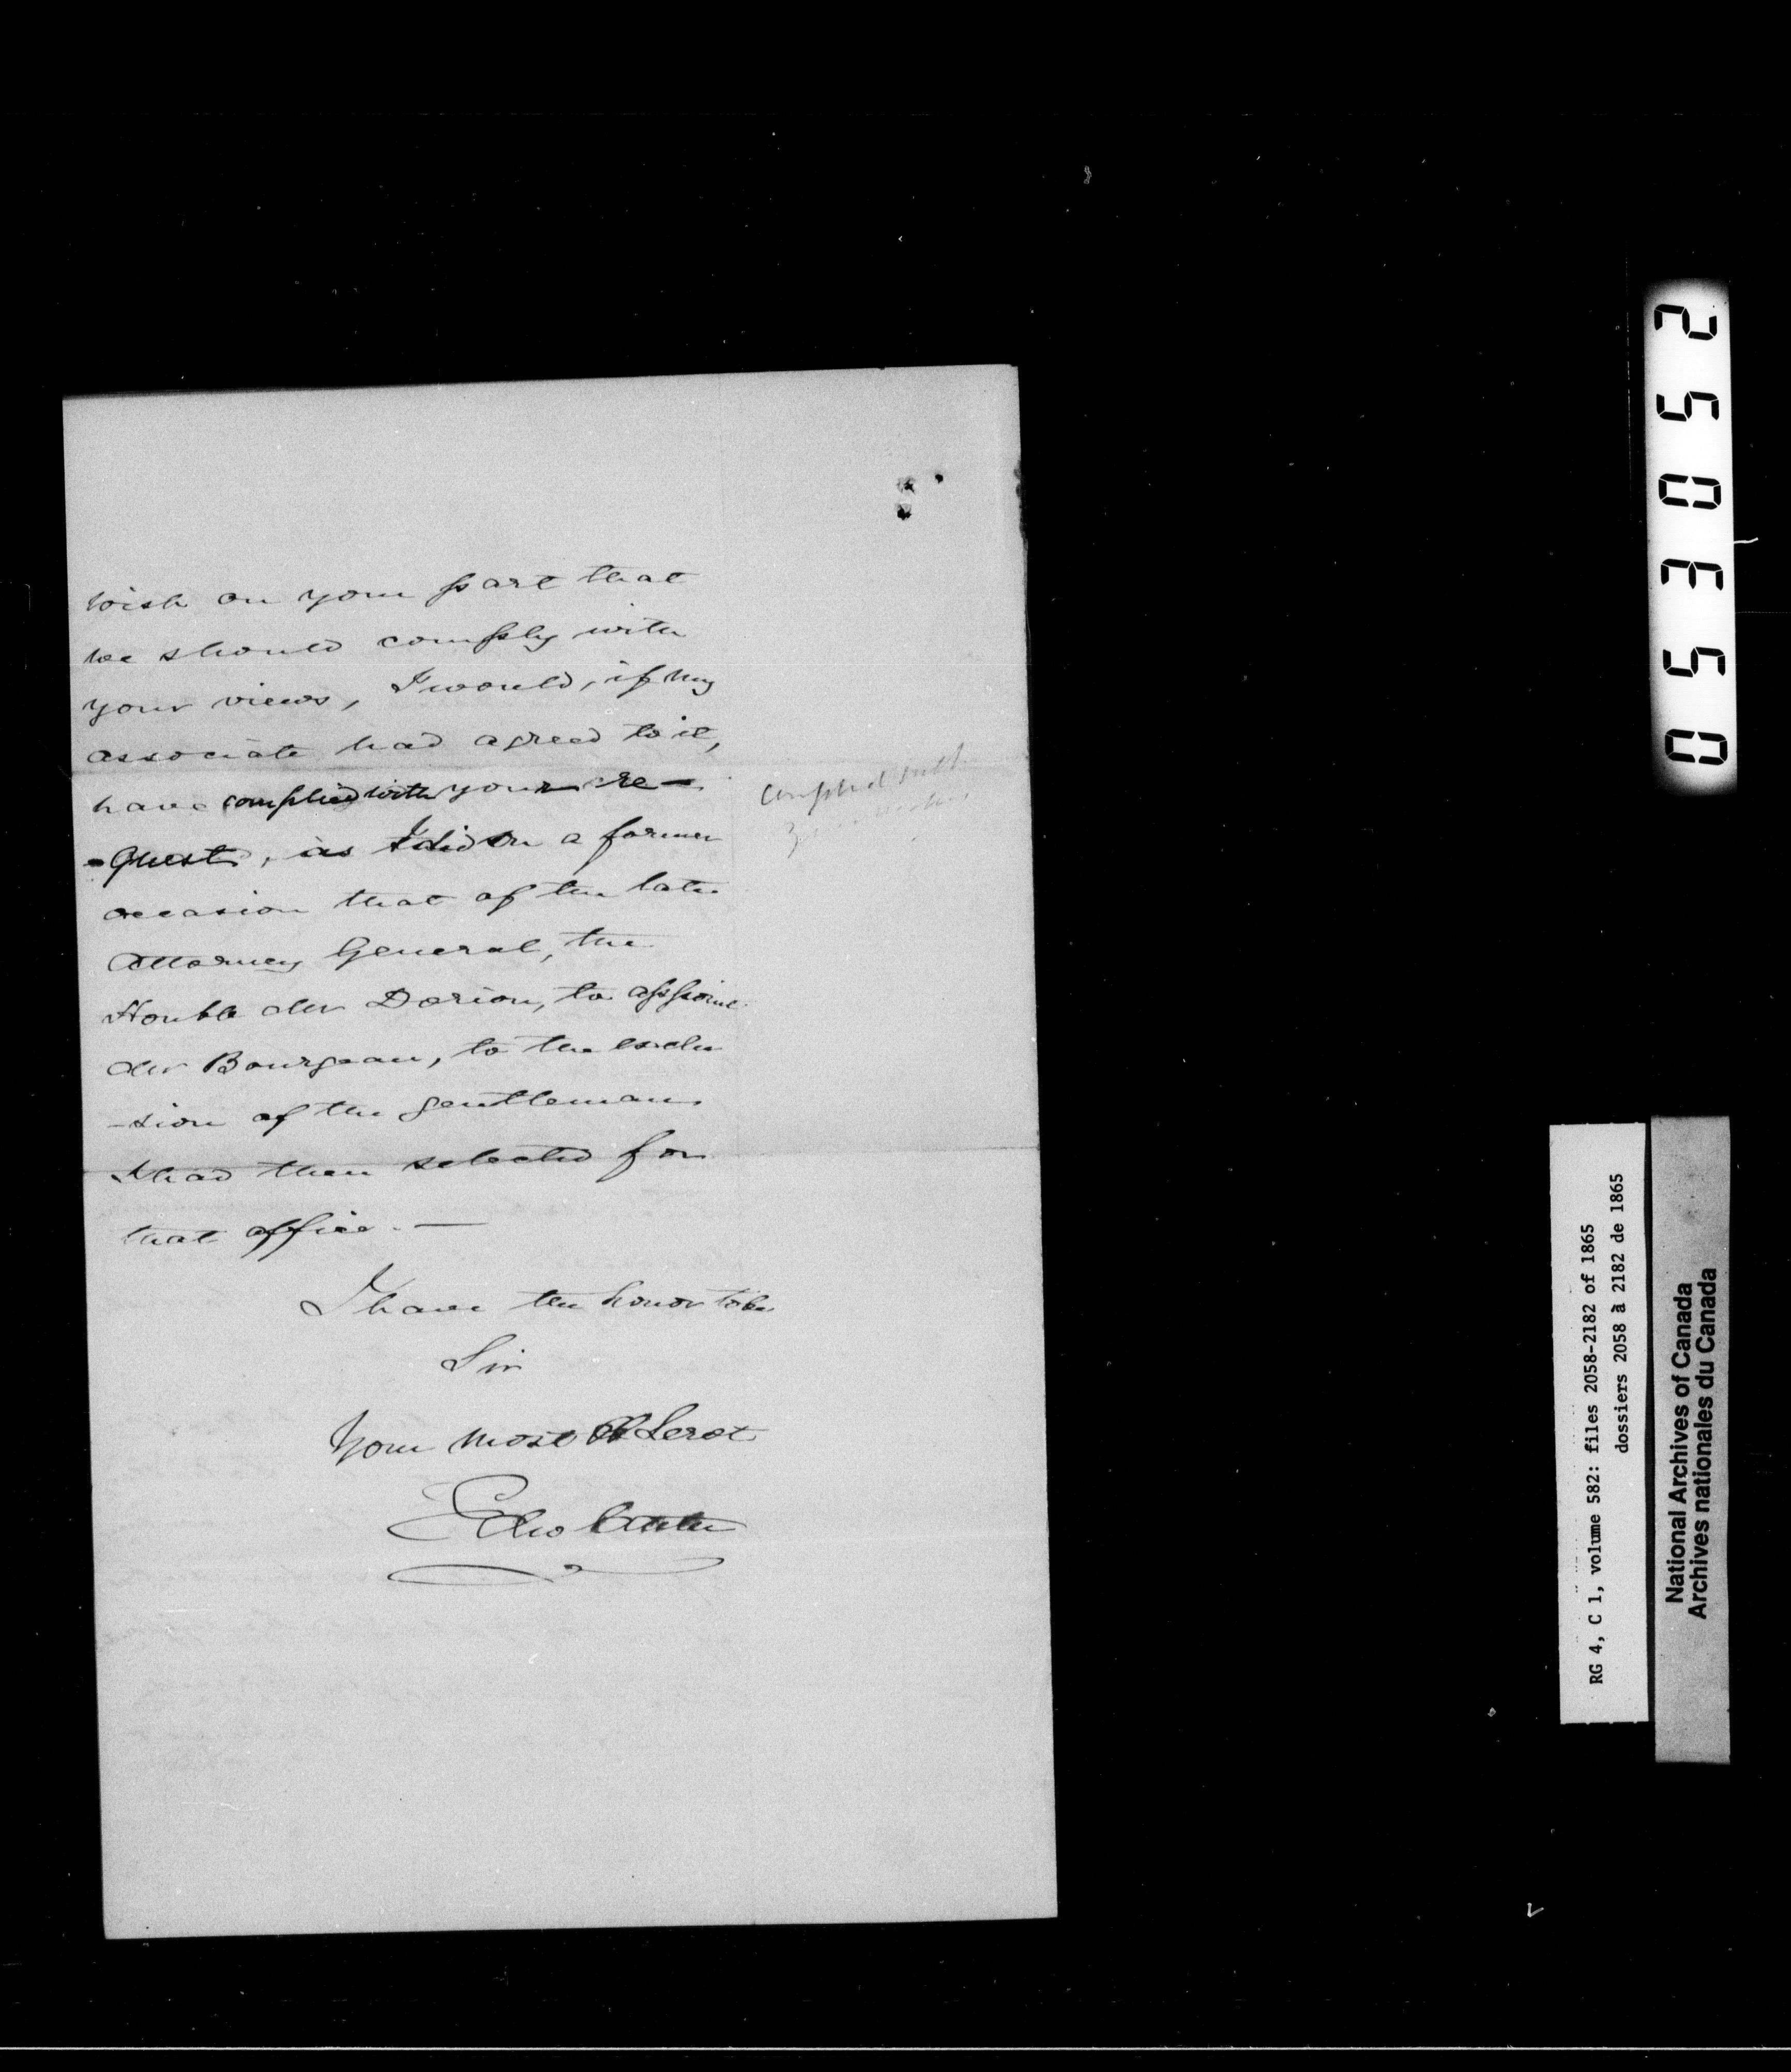 wish on your part that
we should comply with
your views, I would, if my
associate had agreed to it,
have complied with your re-
-quest, as I did on a former
occasion that of the late
Attorney General, the
Honble Mr Dorion, to appoint
Mr Bourgeau, to the exclu
-sion of the gentleman
I had then selected for
that office. —
I have the honor to be
Sir
Your most Ob Servt
complied with
25035 0
RG 4, C 1, volume 582: files 2058-2182 of 1865
dossiers 2058 à 2182 de 1865
National Archives of Canada
Archives nationales du Canada